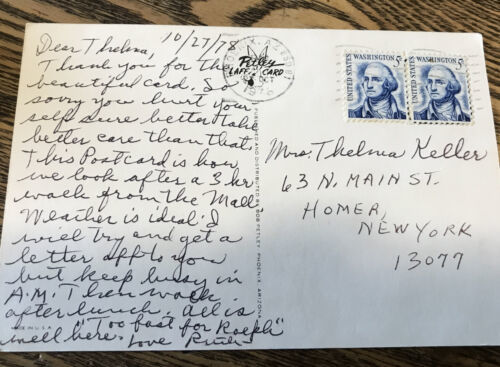 10/27/78
Dear Thelma,
Thank you for the
beautiful card. So
sorry you hurt your
self sure better take
better care than that.
This Postcard is how
we look after a 3 hr
walk from the Mall
Weather is ideal. I
will try and get a
letter off to you
but keep busy in
A.M. Then walk
after lunch. All is
"Too fast for Ralph"
well here. Love Ruth
MADE IN U.S.A.
Petley
LAFF CARD
OCT
1978
DISTRIBUTED BY BOB PETLEY, PHOENIX, ARIZONA
UNITED STATES
WASHINGTON 5c
UNITED STATES
WASHINGTON 5c
Mrs. Thelma Keller
63 N. MAIN ST.
HOMER,
NEW YORK
13077